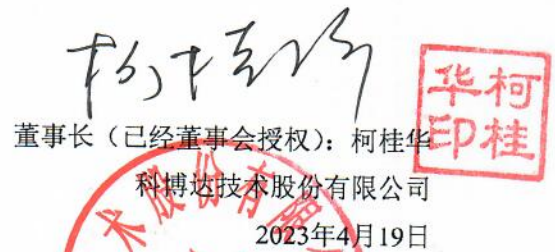 柯桂华
华柯
印桂
董事长（已经董事会授权）：柯桂华
科博达技术股份有限公司
2023年4月19日
术股份有限